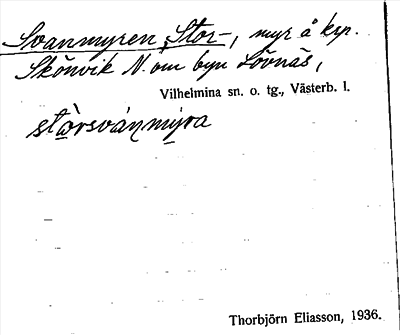 Svanmyren, Stor-, myr å krp.
Skönvik N. om byn Lövnäs,
Vilhelmina sn. o. tg., Västerb. l.
stòrsvánmyra
Thorbjörn Eliasson, 1936.